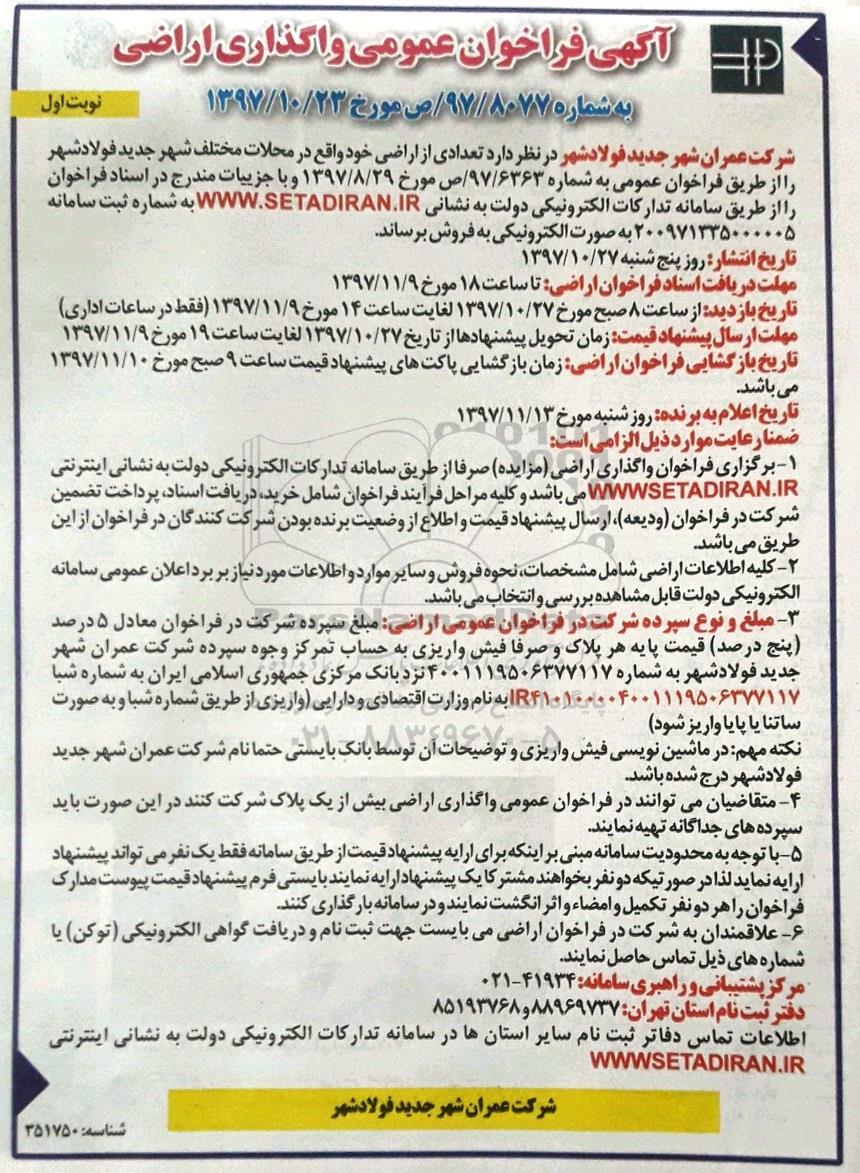 آگهی فراخوان عمومی واگذاری اراضی
به شماره ۹۷/۸۰۷۷/ص مورخ ۱۳۹۷/۱۰/۲۳
نوبت اول
شرکت عمران شهر جدید فولادشهر در نظر دارد تعدادی از اراضی خود واقع در محلات مختلف شهر جدید فولادشهر
را از طریق فراخوان عمومی به شماره ۹۷/۶۳۶۳/ص مورخ ۱۳۹۷/۸/۲۹ و با جزییات مندرج در اسناد فراخوان
را از طریق سامانه تدارکات الکترونیکی دولت به نشانی WWW.SETADIRAN.IR به شماره ثبت سامانه
۲۰۰۹۷۱۳۳۵۰۰۰۰۰۵ به صورت الکترونیکی به فروش برساند.
تاریخ انتشار: روز پنج شنبه ۱۳۹۷/۱۰/۲۷
مهلت دریافت اسناد فراخوان اراضی: تا ساعت ۱۸ مورخ ۱۳۹۷/۱۱/۹
تاریخ بازدید: از ساعت ۸ صبح مورخ ۱۳۹۷/۱۰/۲۷ لغایت ساعت ۱۴ مورخ ۱۳۹۷/۱۱/۹ (فقط در ساعات اداری)
مهلت ارسال پیشنهاد قیمت: زمان تحویل پیشنهادها از تاریخ ۱۳۹۷/۱۰/۲۷ لغایت ساعت ۱۹ مورخ ۱۳۹۷/۱۱/۹
تاریخ بازگشایی فراخوان اراضی: زمان بازگشایی پاکت های پیشنهاد قیمت ساعت ۹ صبح مورخ ۱۳۹۷/۱۱/۱۰
می باشد.
تاریخ اعلام به برنده: روز شنبه مورخ ۱۳۹۷/۱۱/۱۳
ضمنا رعایت موارد ذیل الزامی است:
۱- برگزاری فراخوان واگذاری اراضی (مزایده) صرفا از طریق سامانه تدارکات الکترونیکی دولت به نشانی اینترنتی
WWWSETADIRAN.IR می باشد و کلیه مراحل فرآیند فراخوان شامل خرید، دریافت اسناد، پرداخت تضمین
شرکت در فراخوان (ودیعه)، ارسال پیشنهاد قیمت و اطلاع از وضعیت برنده بودن شرکت کنندگان در فراخوان از این
طریق می باشد.
۲- کلیه اطلاعات اراضی شامل مشخصات، نحوه فروش و سایر موارد و اطلاعات مورد نیاز بر برد اعلان عمومی سامانه
الکترونیکی دولت قابل مشاهده بررسی و انتخاب می باشد.
۳- مبلغ و نوع سپرده شرکت در فراخوان عمومی اراضی: مبلغ سپرده شرکت در فراخوان معادل ۵ درصد
(پنج درصد) قیمت پایه هر پلاک و صرفا فیش واریزی به حساب تمرکز وجوه سپرده شرکت عمران شهر
جدید فولادشهر به شماره ۴۰۰۱۱۱۹۵۰۶۳۷۷۱۱۷ نزد بانک مرکزی جمهوری اسلامی ایران به شماره شبا
IR۴۱۰۱۰۰۰۰۴۰۰۱۱۱۹۵۰۶۳۷۷۱۱۷ به نام وزارت اقتصادی و دارایی (واریزی از طریق شماره شبا و به صورت
ساتنا یا پایا واریز شود)
نکته مهم: در ماشین نویسی فیش واریزی و توضیحات آن توسط بانک بایستی حتما نام شرکت عمران شهر جدید
فولادشهر درج شده باشد.
۴- متقاضیان می توانند در فراخوان عمومی واگذاری اراضی بیش از یک پلاک شرکت کنند در این صورت باید
سپرده های جداگانه تهیه نمایند.
۵- با توجه به محدودیت سامانه مبنی بر اینکه برای ارایه پیشنهاد قیمت از طریق سامانه فقط یک نفر می تواند پیشنهاد
ارایه نماید لذا در صورتیکه دو نفر بخواهند مشترکا یک پیشنهاد ارایه نمایند بایستی فرم پیشنهاد قیمت پیوست مدارک
فراخوان را هر دو نفر تکمیل و امضاء و اثر انگشت نمایند و در سامانه بارگذاری کنند.
۶- علاقمندان به شرکت در فراخوان اراضی می بایست جهت ثبت نام و دریافت گواهی الکترونیکی (توکن) یا
شماره های ذیل تماس حاصل نمایند.
مرکز پشتیبانی و راهبری سامانه: ۴۱۹۳۴-۰۲۱
دفتر ثبت نام استان تهران: ۸۸۹۶۹۷۳۷ و ۸۵۱۹۳۷۶۸
اطلاعات تماس دفاتر ثبت نام سایر استان ها در سامانه تدارکات الکترونیکی دولت به نشانی اینترنتی
WWWSETADIRAN.IR
شرکت عمران شهر جدید فولادشهر
شناسه: ۳۵۱۷۵۰
ParsNamadData
۰۲۱-۸۸۳۴۹۶۷۰-۵